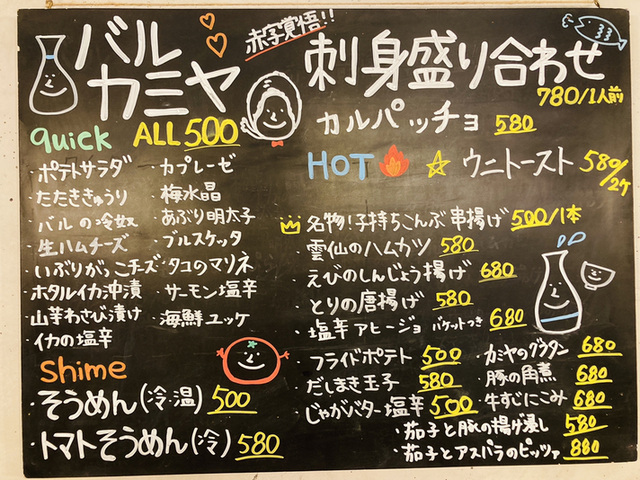 バル
カミヤ
赤字覚悟!!
刺身盛り合わせ
780/1人前
カルパッチョ 580
quick ALL500
・ポテトサラダ
・たたききゅうり
・バルの冷奴
・生ハムチーズ
・いぶりがっこチーズ
・ホタルイカ沖漬
・山芋わさび漬け
・イカの塩辛
・カプレーゼ
・梅水晶
・あぶり明太子
・ブルスケッタ
・タコのマリネ
・サーモン塩辛
・海鮮ユッケ
shime
・そうめん(冷・温) 500
・トマトそうめん(冷) 580
HOT ☆ウニトースト 580/2ケ
名物!子持ちこんぶ串揚げ 500/1本
・雲仙のハムカツ 580
・えびのしんじょう揚げ 680
・とりの唐揚げ 580
・塩辛アヒージョ バケットつき 680
・フライドポテト 500
・だしまき玉子 580
・じゃがバター塩辛 500
・カミヤのグラタン 680
・豚の角煮 680
・牛すじにこみ 680
・茄子と豚の揚げ凍し 580
・茄子とアスパラのピッツァ 880